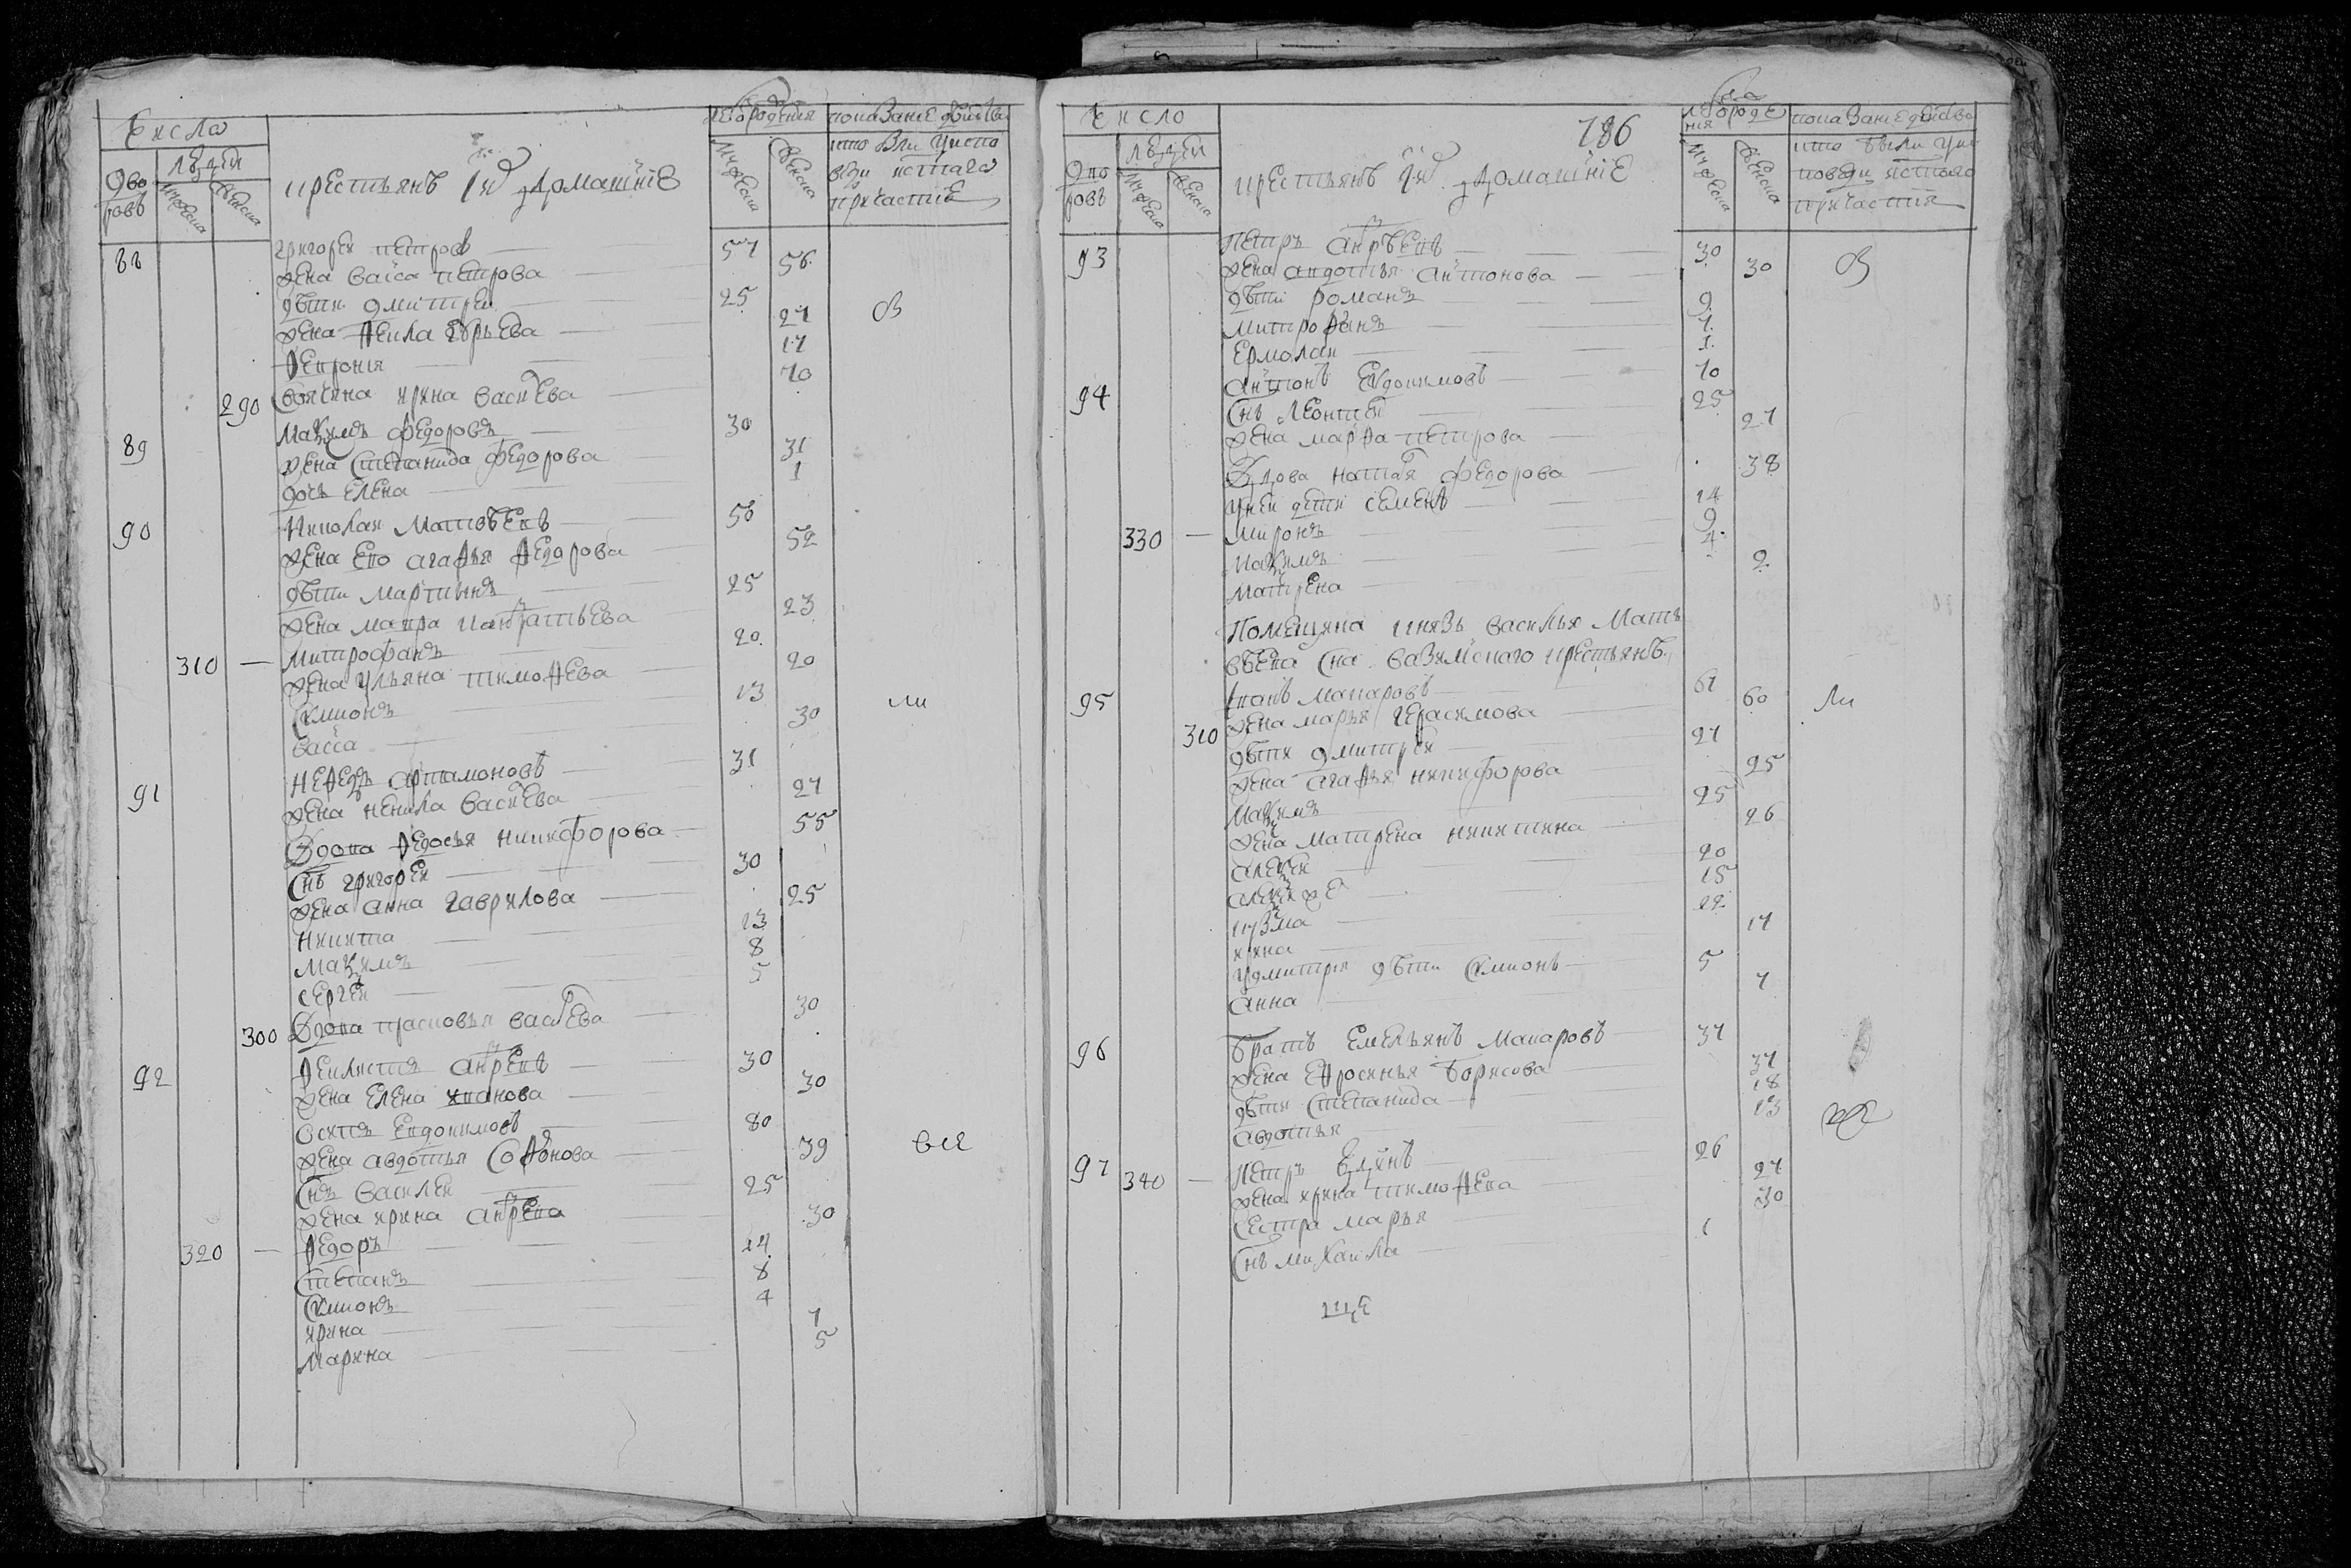 Числа
лета рождения
показание действа
Дворовъ
людей
мужеска
женска
крестьянъ и их домашние
мужеска
женска
кто были у исповеди и с таго причастия
88 григореи петров 57
жена васса петрова 56
дѣти дмитреи 25
жена фекла 27 В
феврония 17
290 ирина васиева 10
89 маѯимъ федоровъ 30
жена степанида федорова 31
дочь елена 1
90 николаи матвѣевъ 56
жена ево агафья федорова 52
дѣти мартинъ 25
жена мавра панкратьева 23
310 митрофанъ 20
жена ульяна тимофева 20
симионъ 13 ли
васса 30
91 нефедъ артамоновъ 31
жена ненила васиева 27
вдова федосья никифорова 55
снъ григореи 30
жена анна гаврилова 25
никита 13
маѯимъ 8
сергеи 5
300 вдова прасковья васиева 30
92 феклистъ анревъ 30
жена елена иванова 30
осипъ евдокимовъ 80
жена авдотья софонова 39 вся
снъ василеи 25
жена ирина анрева 30
320 федоръ 14
степанъ 8
симионъ 4
ирина 7
марина 5
Число
лета рождения
786
показание действа
Дворовъ
людей
мужеска
женска
крестьянъ и их домашние
мужеска
женска
кто были у исповеди и с таго причастия
93 петръ анрѣевъ 30
жена авдотья антонова 30 В
дѣти романъ 9
митрофанъ 7
ермолаи 1
94 антонъ евдокимовъ 70
снъ леонтеи 25
жена марфа петрова 27
вдова наталя федорова 38
у неи дети семенъ 14
330 миронъ 9
маѯимъ 4
матрена 2
Помещика князь василья мать
вѣева сна вяземскаго крестьянъ
95 иванъ макаровъ 61
310 жена марья герасимова 60 ли
дѣти дмитреи 27
жена агафья никифорова 25
маѯимъ 25
жена матрена никитина 26
алеѯеи 20
15
кузма 12
ирина 17
у дмитрия дѣти симионъ 5
анна 7
96 братъ емельянъ макаровъ 37
жена ефросинья борисова 37
дѣти степанида 18
авдотья 13
97 340 петръ 26
жена ирина тимофева 27
сестра марья 30
снъ михаила 1